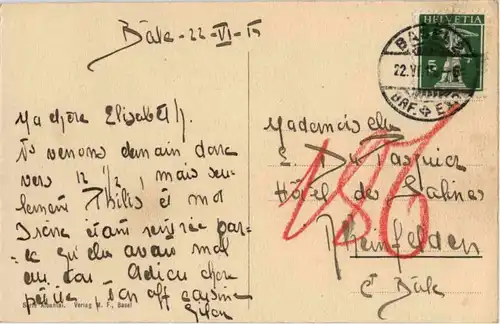 Bâle - 22 - VI - 15
Ma chère Elisabeth,
venons demain dans
vers 12 ½, mais seu-
lement Philis et moi
Irène étant rentrée par-
ce qu'elle avait mal
au cou. Adieu chère
petite, ton aff cousine
HELVETIA
5
BASEL 2
22.VI.
BRF. EXP.
Mademoiselle
E. Du Pasquier
Hôtel des Salines
Rheinfelden
Bâle
186
Verlag M. F., Basel